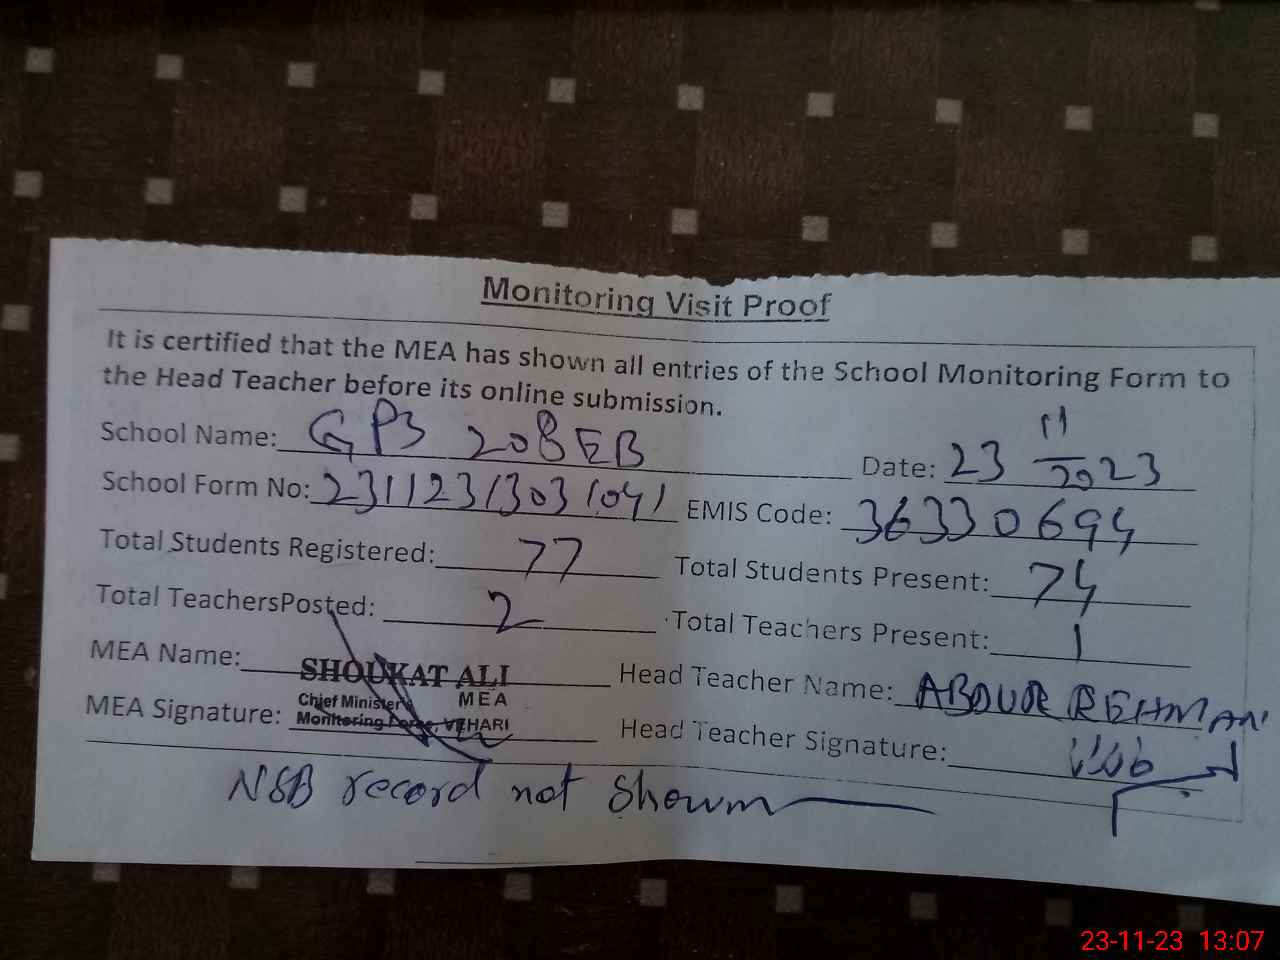 Monitoring Visit Proof
It is certified that the MEA has shown all entries of the School Monitoring Form to
the Head Teacher before its online submission.
School Name: GPS 208EB Date: 23 11/2023
School Form No: 23112313031041 EMIS Code: 36330694
Total Students Registered: 77 Total Students Present: 74
Total TeachersPosted: 2 Total Teachers Present: 1
MEA Name: SHOUKAT ALI Head Teacher Name: ABDUR REHMAN
Chief Minister's MEA
Monitoring Force, VEHARI
MEA Signature: Head Teacher Signature:
NSB record not shown
23-11-23 13:07